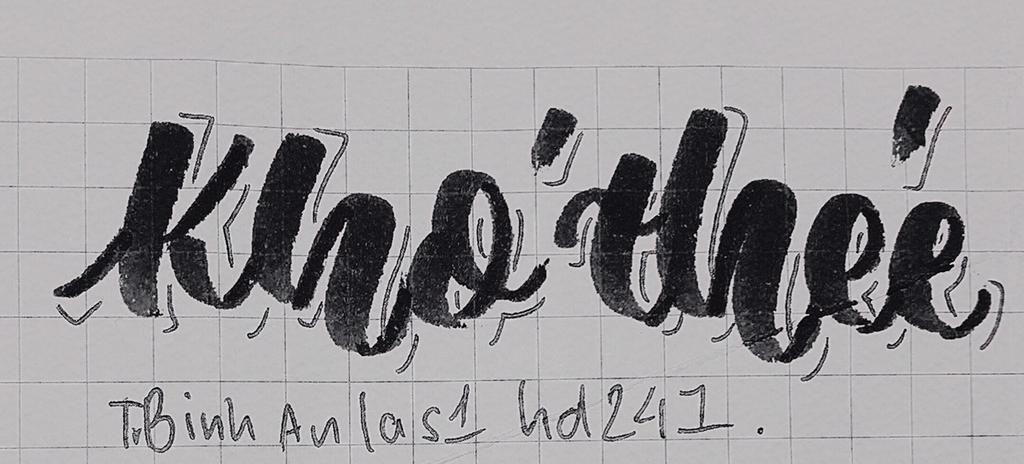 Khó theé
T.Binh An las1 hd241.